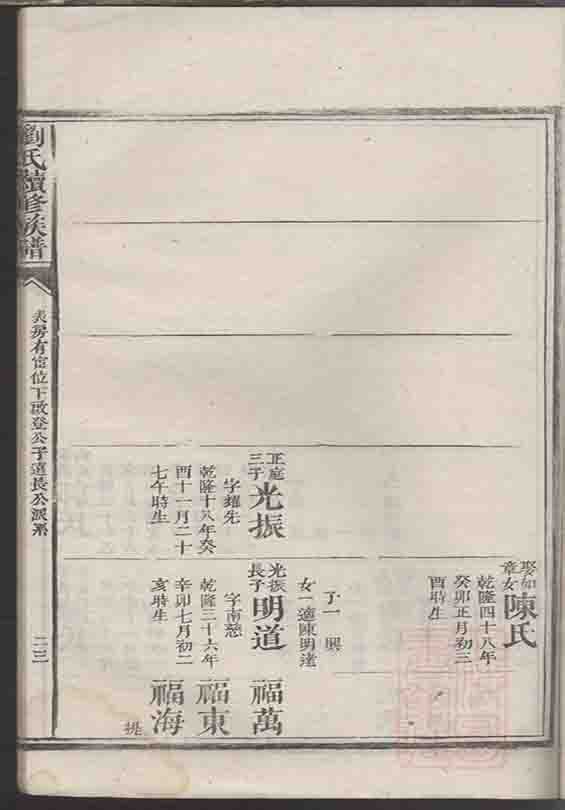 娶如章女陳氏
乾隆四十八年
癸卯正月初三
酉時生
子一 興
女一適陳明達
正庭三子光振
字耀先
乾隆十八年癸
酉十一月二十
七午時生
光振長子明道
字南慈
乾隆三十六年
辛卯七月初二
亥時生
福萬
福東
福海
劉氏續修族譜
房有富位下啟登公子遠長公派系
二三